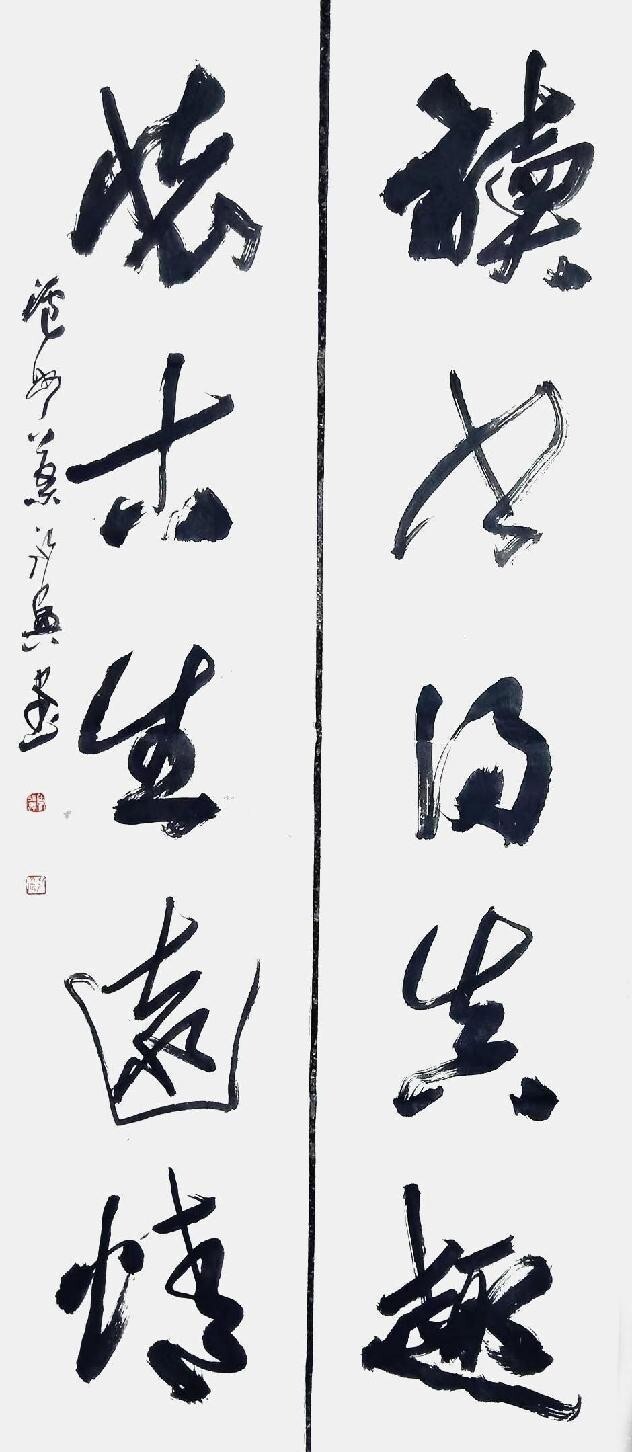 读书得真趣
怀古生远情